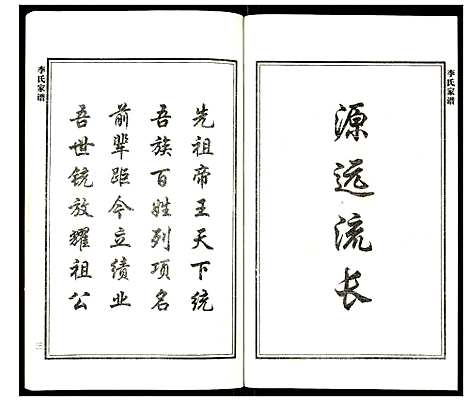 李氏家谱
源远流长
先祖帝王天下统
吾族百姓列项名
前辈距今立绩业
吾世镜放耀祖公
李氏家谱
三